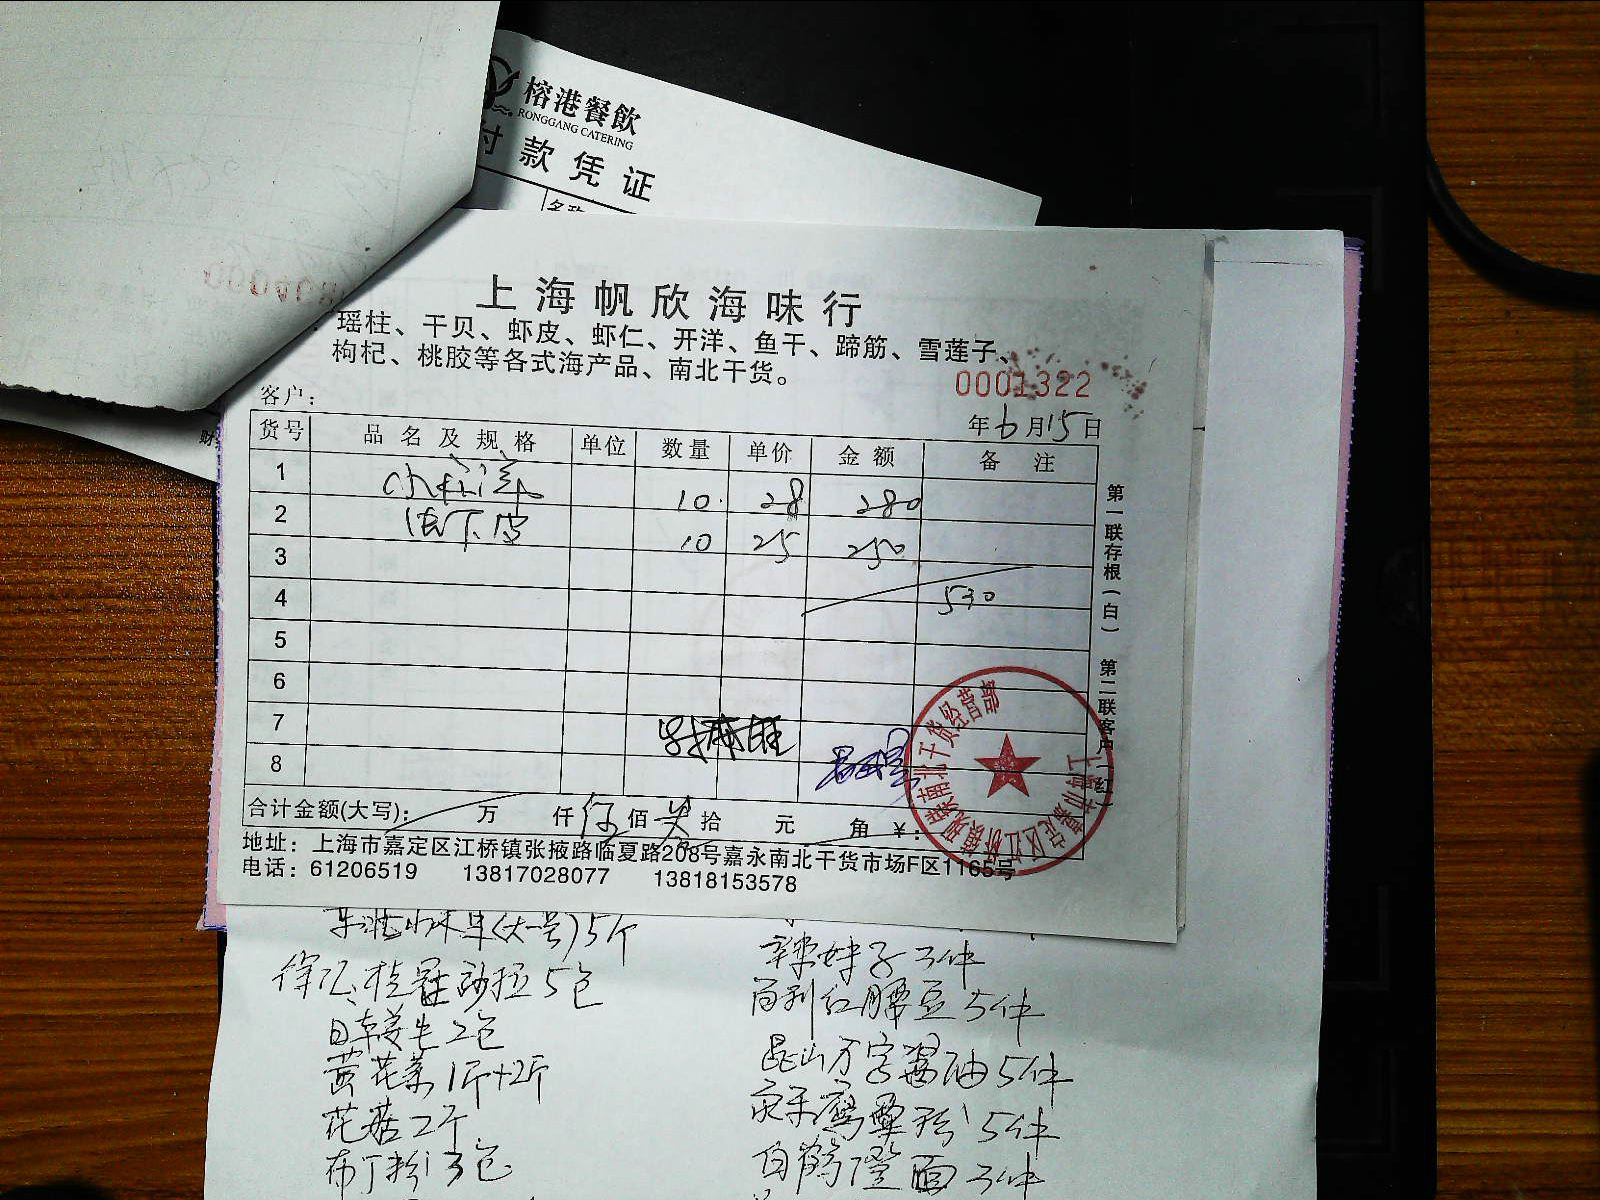 榕港餐飲
RONGGANG CATERING
付款凭证
上海帆欣海味行
瑶柱、干贝、虾皮、虾仁、开洋、鱼干、蹄筋、雪莲子、
枸杞、桃胶等各式海产品、南北干货。
0001322
客户：
年6月15日
货号 品名及规格 单位 数量 单价 金额 备注
1 小开洋 10 28 280
2 10 25 250
3
4 530
5
6
7
8
合计金额(大写)： 万 仟 伍 佰 拾 元 角 ￥：
地址：上海市嘉定区江桥镇张掖路临夏路208号嘉永南北干货市场F区1165号
电话：61206519 13817028077 13818153578
第一联存根(白) 第二联客户(红)
南北干货经营部
上海市嘉定区江桥镇
(大一号)5个
桂冠沙拉5包
2包
黄花菜1斤+2斤
花菇2个
布丁粉3包
辣妹子3件
百利红腰豆5件
昆山万字酱油5件
鹰粟粉5件
白鹤澄面3件